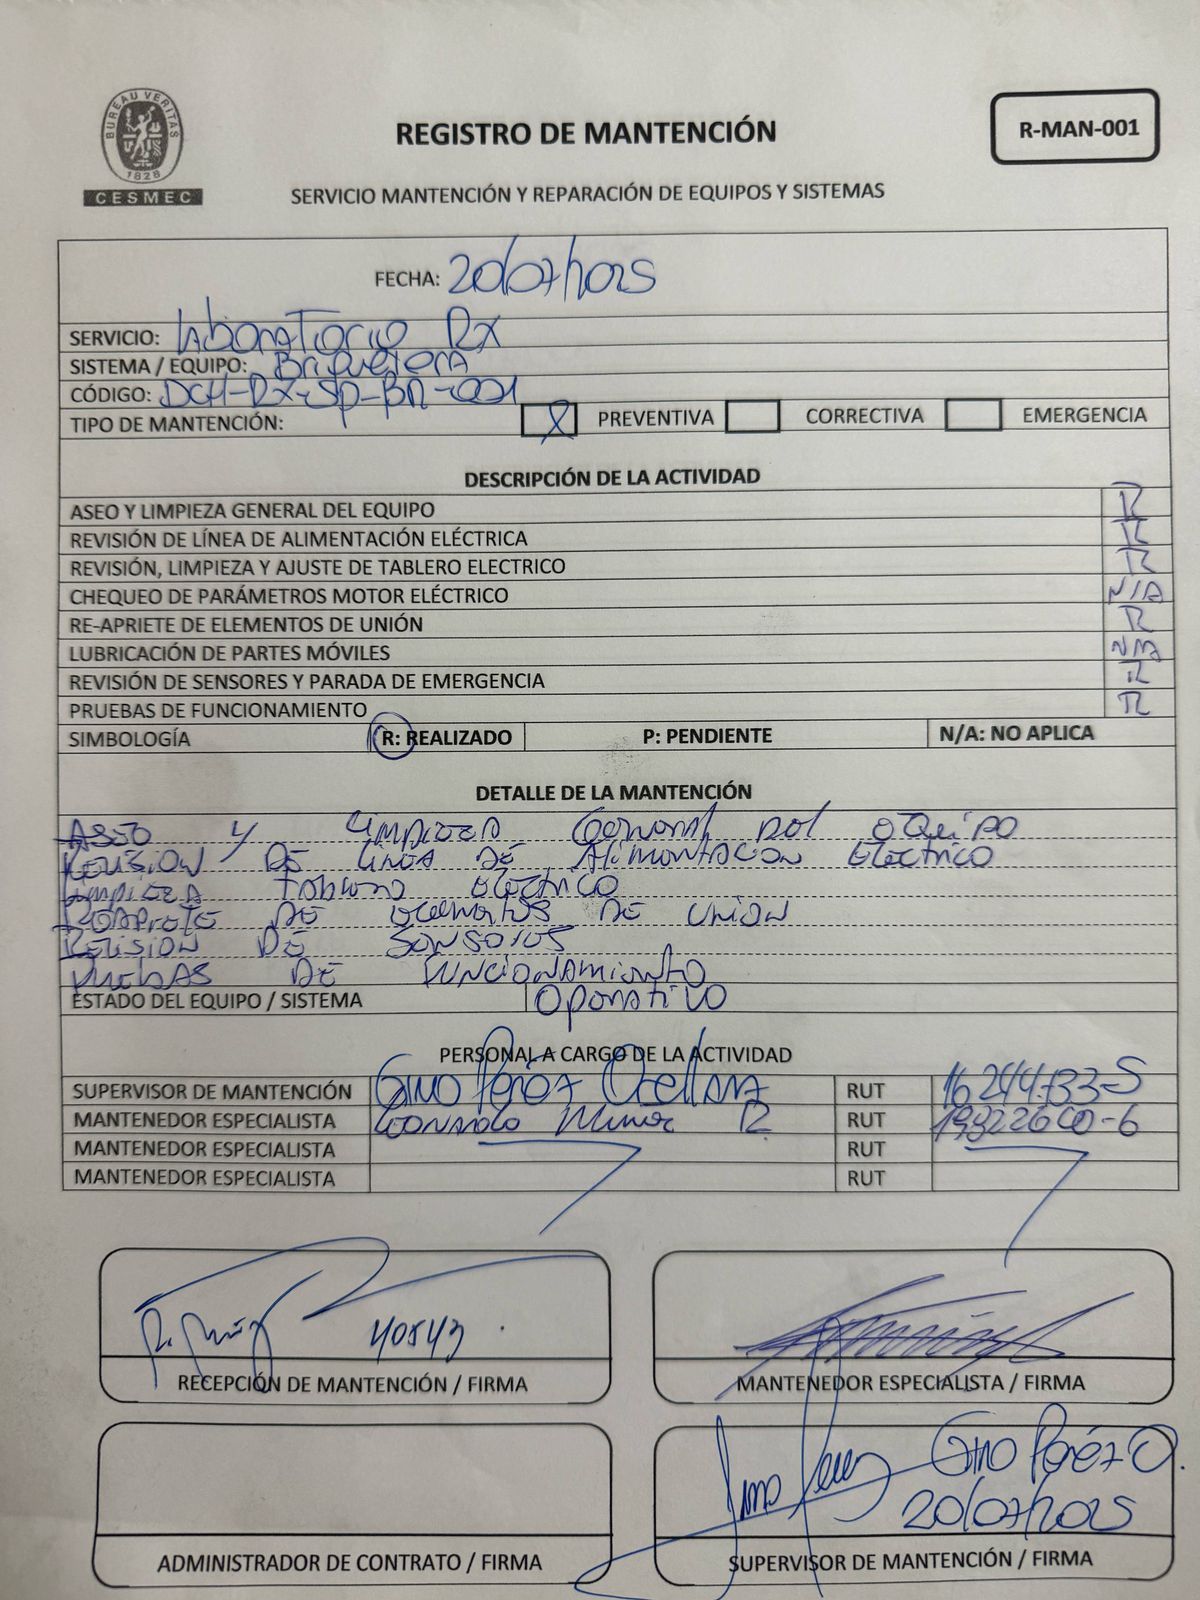 BUREAU VERITAS
1828
CESMEC
REGISTRO DE MANTENCIÓN
R-MAN-001
SERVICIO MANTENCIÓN Y REPARACIÓN DE EQUIPOS Y SISTEMAS
FECHA: 20/07/2025
SERVICIO: Laboratorio RX
SISTEMA / EQUIPO: Briquetera
CÓDIGO: DCH-RX-SP-BR-001
TIPO DE MANTENCIÓN: X PREVENTIVA CORRECTIVA EMERGENCIA
DESCRIPCIÓN DE LA ACTIVIDAD
ASEO Y LIMPIEZA GENERAL DEL EQUIPO R
REVISIÓN DE LÍNEA DE ALIMENTACIÓN ELÉCTRICA R
REVISIÓN, LIMPIEZA Y AJUSTE DE TABLERO ELECTRICO R
CHEQUEO DE PARÁMETROS MOTOR ELÉCTRICO N/A
RE-APRIETE DE ELEMENTOS DE UNIÓN R
LUBRICACIÓN DE PARTES MÓVILES N/A
REVISIÓN DE SENSORES Y PARADA DE EMERGENCIA R
PRUEBAS DE FUNCIONAMIENTO R
SIMBOLOGÍA R: REALIZADO P: PENDIENTE N/A: NO APLICA
DETALLE DE LA MANTENCIÓN
Aseo y limpieza general del equipo
Revision de linea de alimentacion electrico
Limpieza tablero electrico
Reapriete de elementos de union
Revision de sensores
Pruebas de funcionamiento
ESTADO DEL EQUIPO / SISTEMA Operativo
PERSONAL A CARGO DE LA ACTIVIDAD
SUPERVISOR DE MANTENCIÓN Gino Peréz Orellana RUT 16244733-5
MANTENEDOR ESPECIALISTA Gonzalo R RUT
MANTENEDOR ESPECIALISTA RUT
MANTENEDOR ESPECIALISTA RUT
40543
RECEPCIÓN DE MANTENCIÓN / FIRMA
MANTENEDOR ESPECIALISTA / FIRMA
Gino Peréz O.
20/07/2025
ADMINISTRADOR DE CONTRATO / FIRMA
SUPERVISOR DE MANTENCIÓN / FIRMA